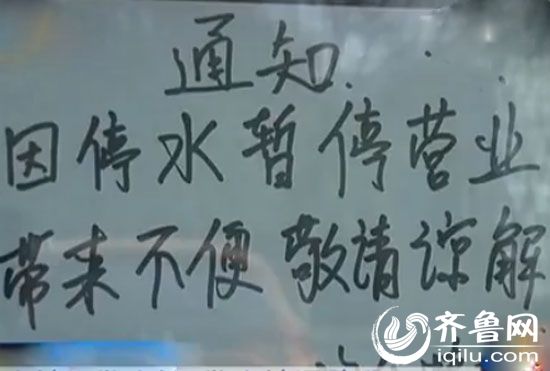 通知
因停水暂停营业
带来不便 敬请谅解
齐鲁网
iqilu.com